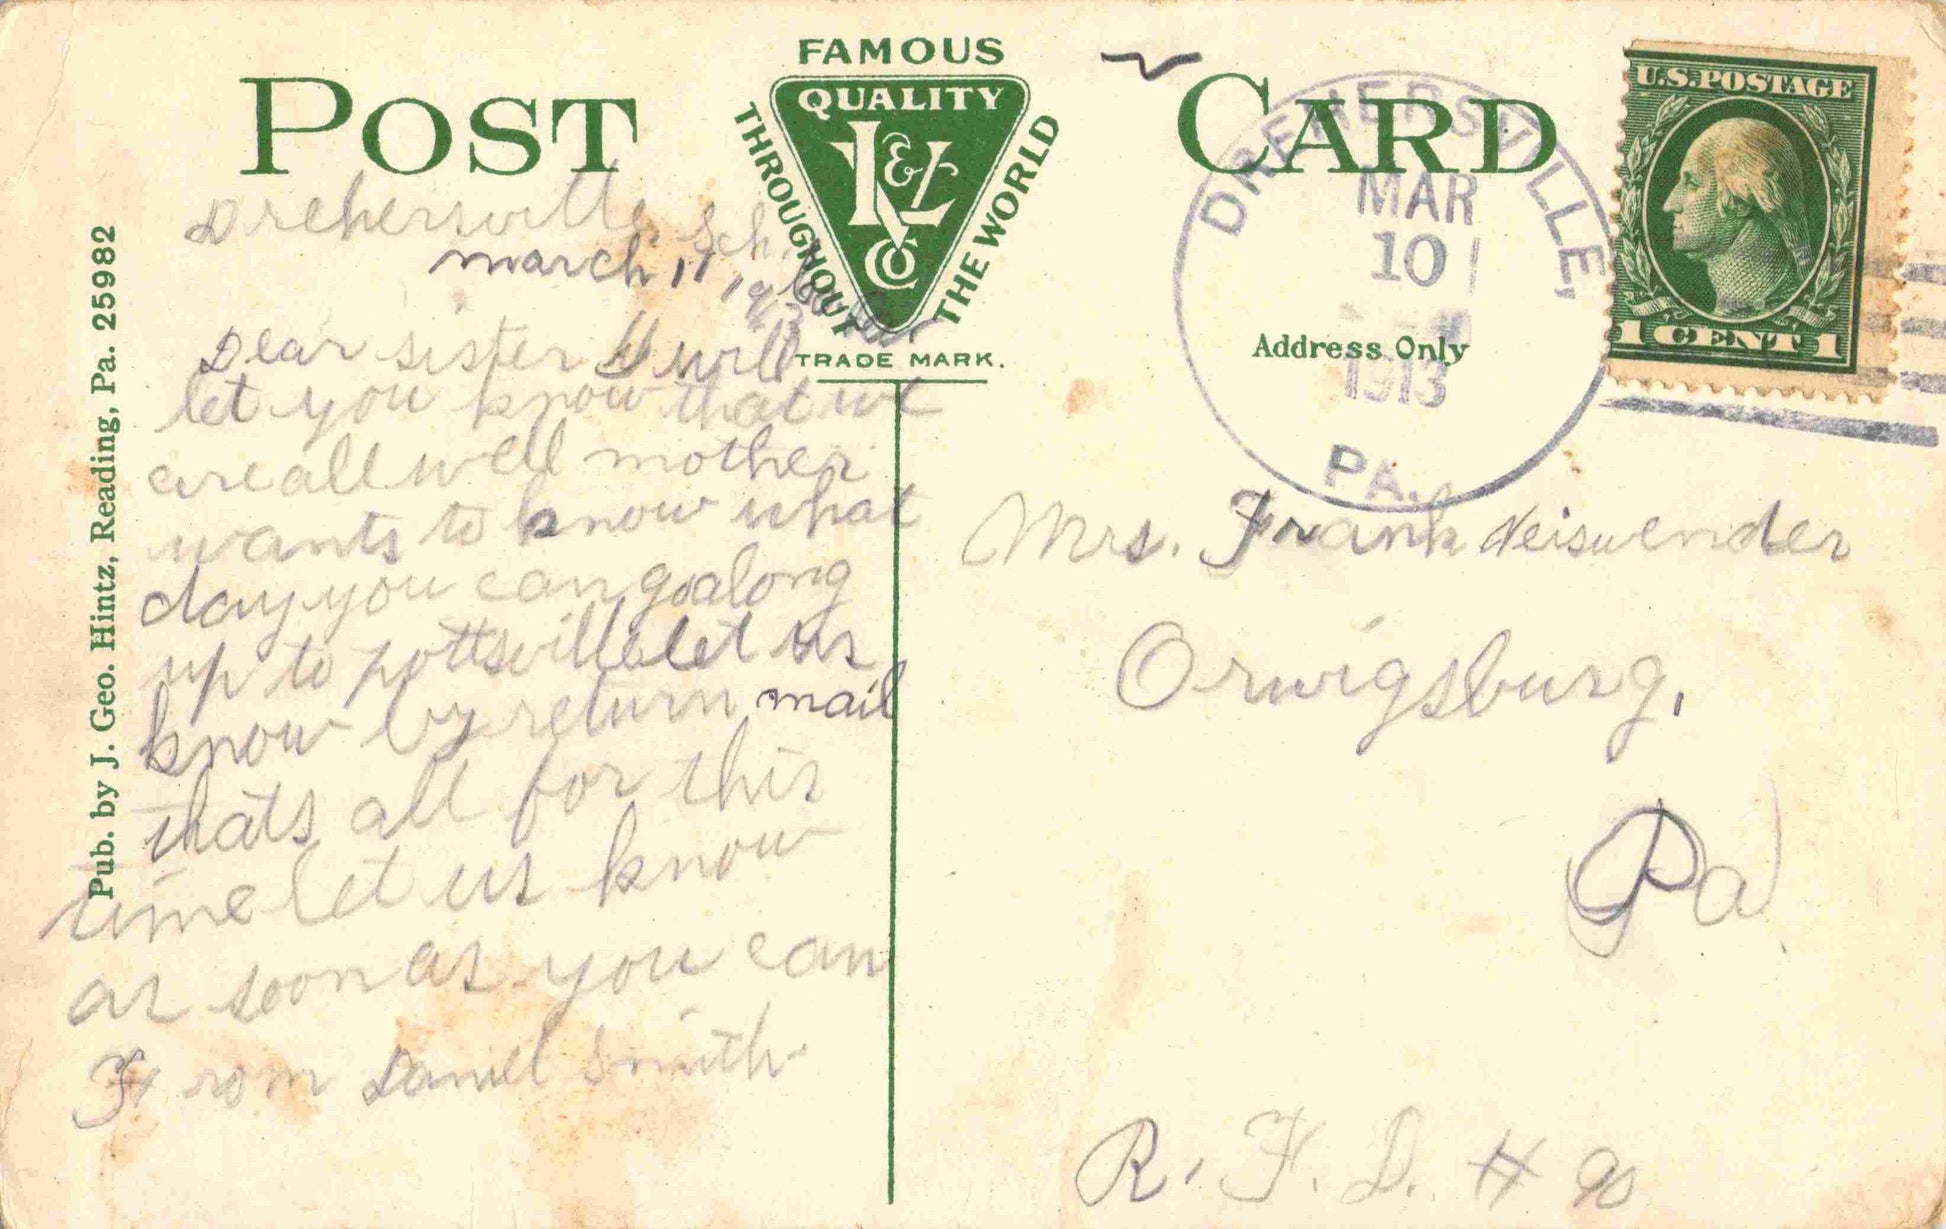 POST CARD
FAMOUS
QUALITY
THROUGHOUT THE WORLD
K & L Co
TRADE MARK.
Pub. by J. Geo. Hintz, Reading, Pa. 25982
Drehersville, Sch.
march 11 1913
Dear sister I will
let you know that we
are all well mother
wants to know what
day you can go along
up to pottsville let us
know by return mail
thats all for this
time let us know
as soon as you can
From Daniel Smith
DREHERSVILLE,
MAR
10
1913
PA.
Address Only
U.S. POSTAGE
1 CENT 1
Mrs. Frank Neiswender
Orwigsburg,
Pa
R. F. D. #